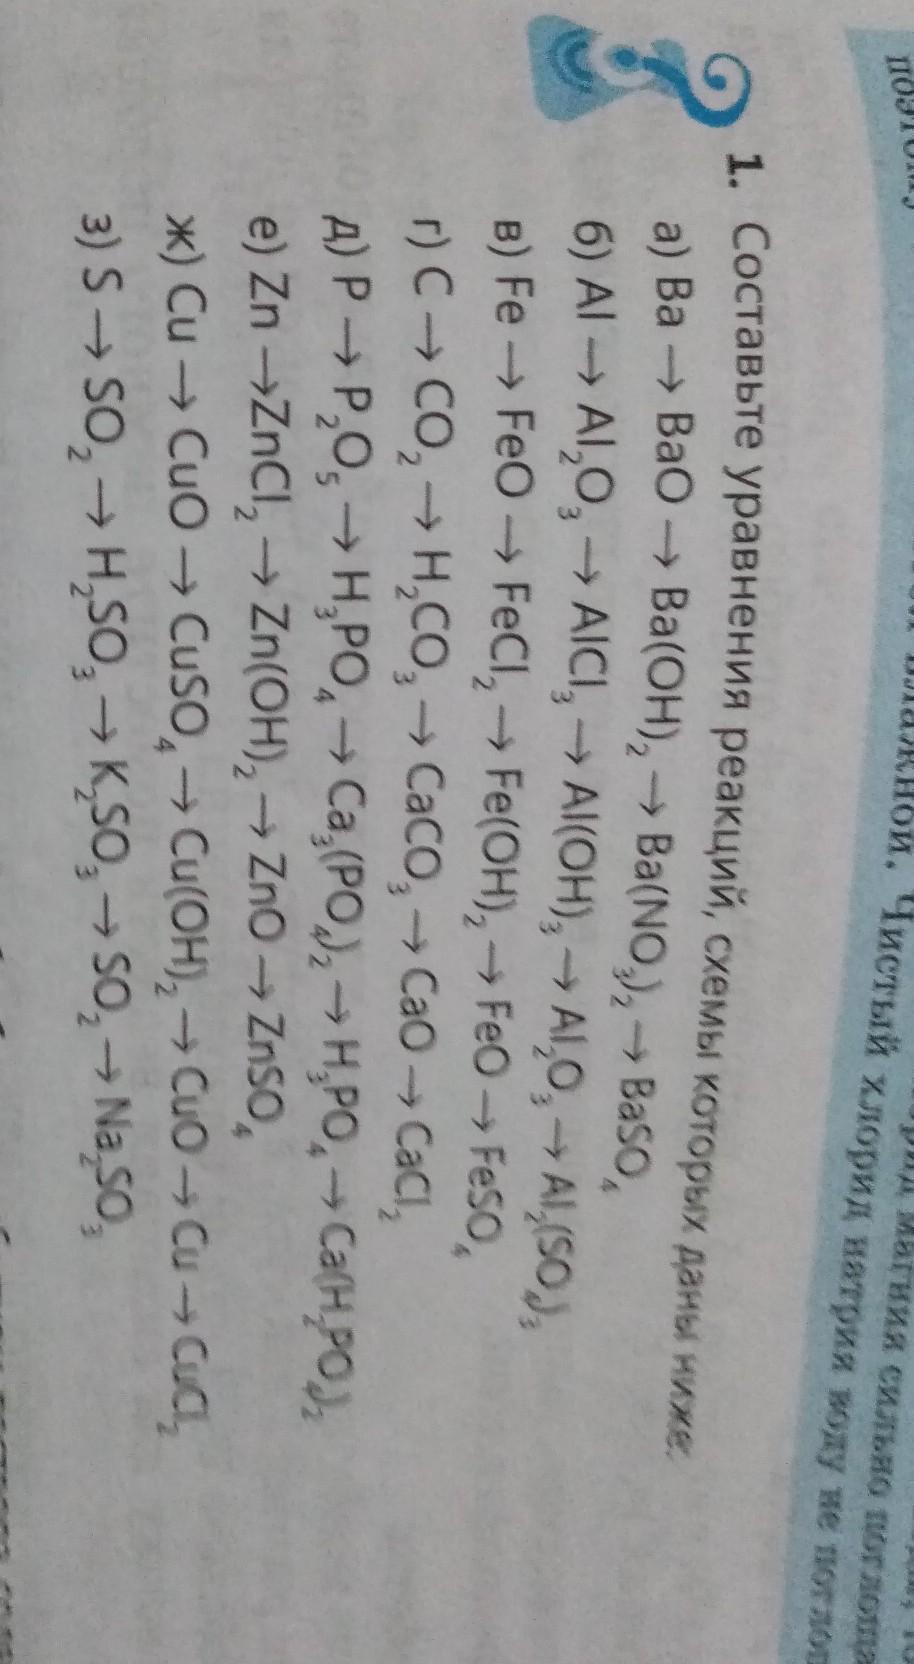 влажной. Чистый хлорид натрия воду не
магния сильно
1. Составьте уравнения реакций, схемы которых даны ниже:
а) Ba → BaO → Ba(OH)₂ → Ba(NO₃)₂ → BaSO₄
б) Al → Al₂O₃ → AlCl₃ → Al(OH)₃ → Al₂O₃ → Al₂(SO₄)₃
в) Fe → FeO → FeCl₂ → Fe(OH)₂ → FeO → FeSO₄
г) C → CO₂ → H₂CO₃ → CaCO₃ → CaO → CaCl₂
д) P → P₂O₅ → H₃PO₄ → Ca₃(PO₄)₂ → H₃PO₄ → Ca(H₂PO₄)₂
е) Zn → ZnCl₂ → Zn(OH)₂ → ZnO → ZnSO₄
ж) Cu → CuO → CuSO₄ → Cu(OH)₂ → CuO → Cu → CuCl₂
з) S → SO₂ → H₂SO₃ → K₂SO₃ → SO₂ → Na₂SO₃